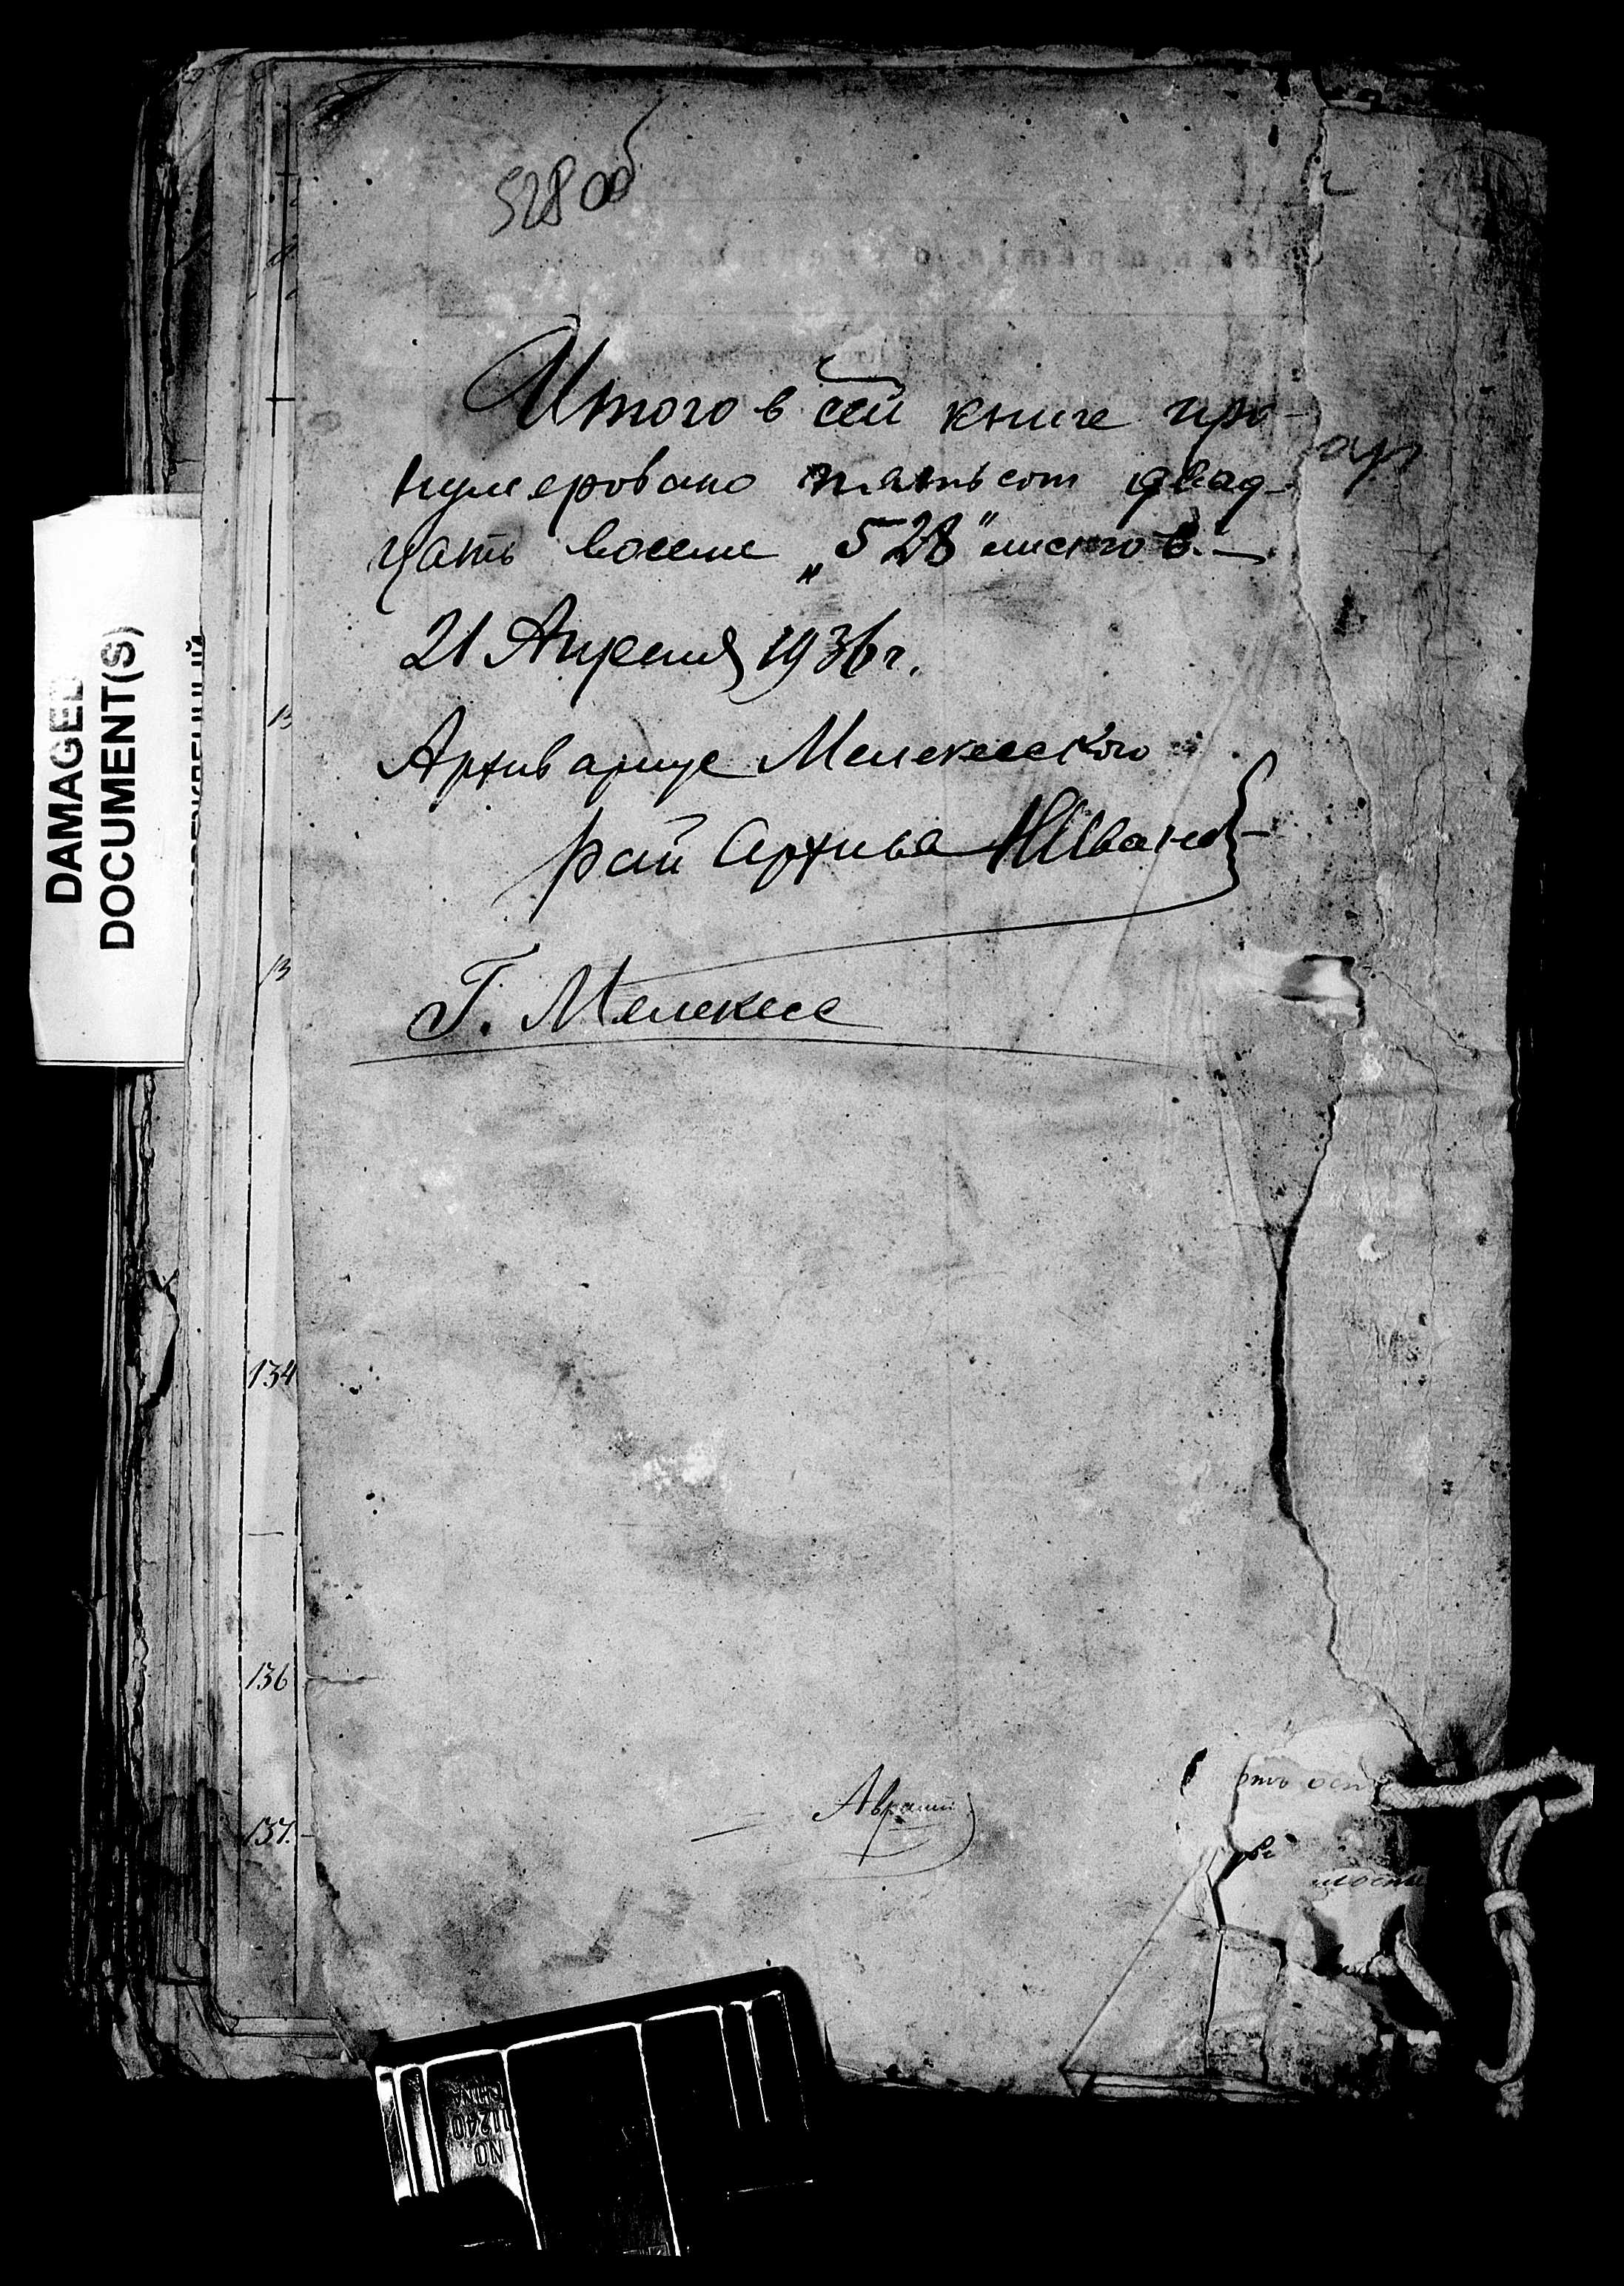 528 об
Итого в сей книге про-
нумеровано пятьсот двад-
цать восемь „528" листов.—
21 Апреля 1936 г.
Архивариус Мелекесского
рай Архива НИванов
Г. Мелекесс
DAMAGED
DOCUMENT(S)
134
136
137.